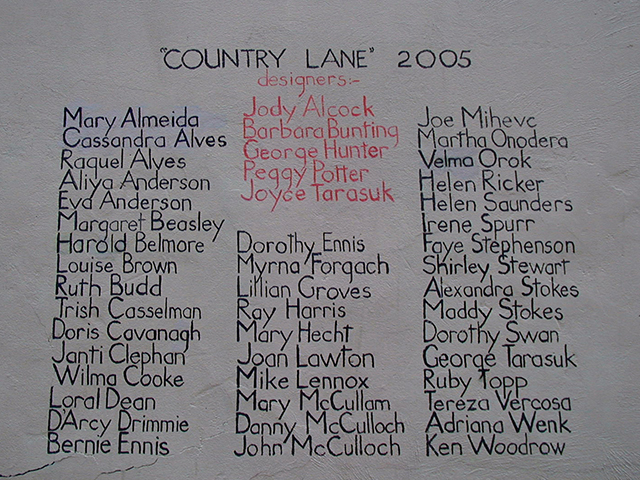 "COUNTRY LANE" 2005
designers:-
Jody Alcock
Barbara Bunting
George Hunter
Peggy Potter
Joyce Tarasuk
Mary Almeida
Cassandra Alves
Raquel Alves
Aliya Anderson
Eva Anderson
Margaret Beasley
Harold Belmore
Louise Brown
Ruth Budd
Trish Casselman
Doris Cavanagh
Janti Clephan
Wilma Cooke
Loral Dean
D'Arcy Drimmie
Bernie Ennis
Dorothy Ennis
Myrna Forgach
Lillian Groves
Ray Harris
Mary Hecht
Joan Lawton
Mike Lennox
Mary McCullam
Danny McCulloch
John McCulloch
Joe Mihevc
Martha Onodera
Velma Orok
Helen Ricker
Helen Saunders
Irene Spurr
Faye Stephenson
Shirley Stewart
Alexandra Stokes
Maddy Stokes
Dorothy Swan
George Tarasuk
Ruby Topp
Tereza Vercosa
Adriana Wenk
Ken Woodrow